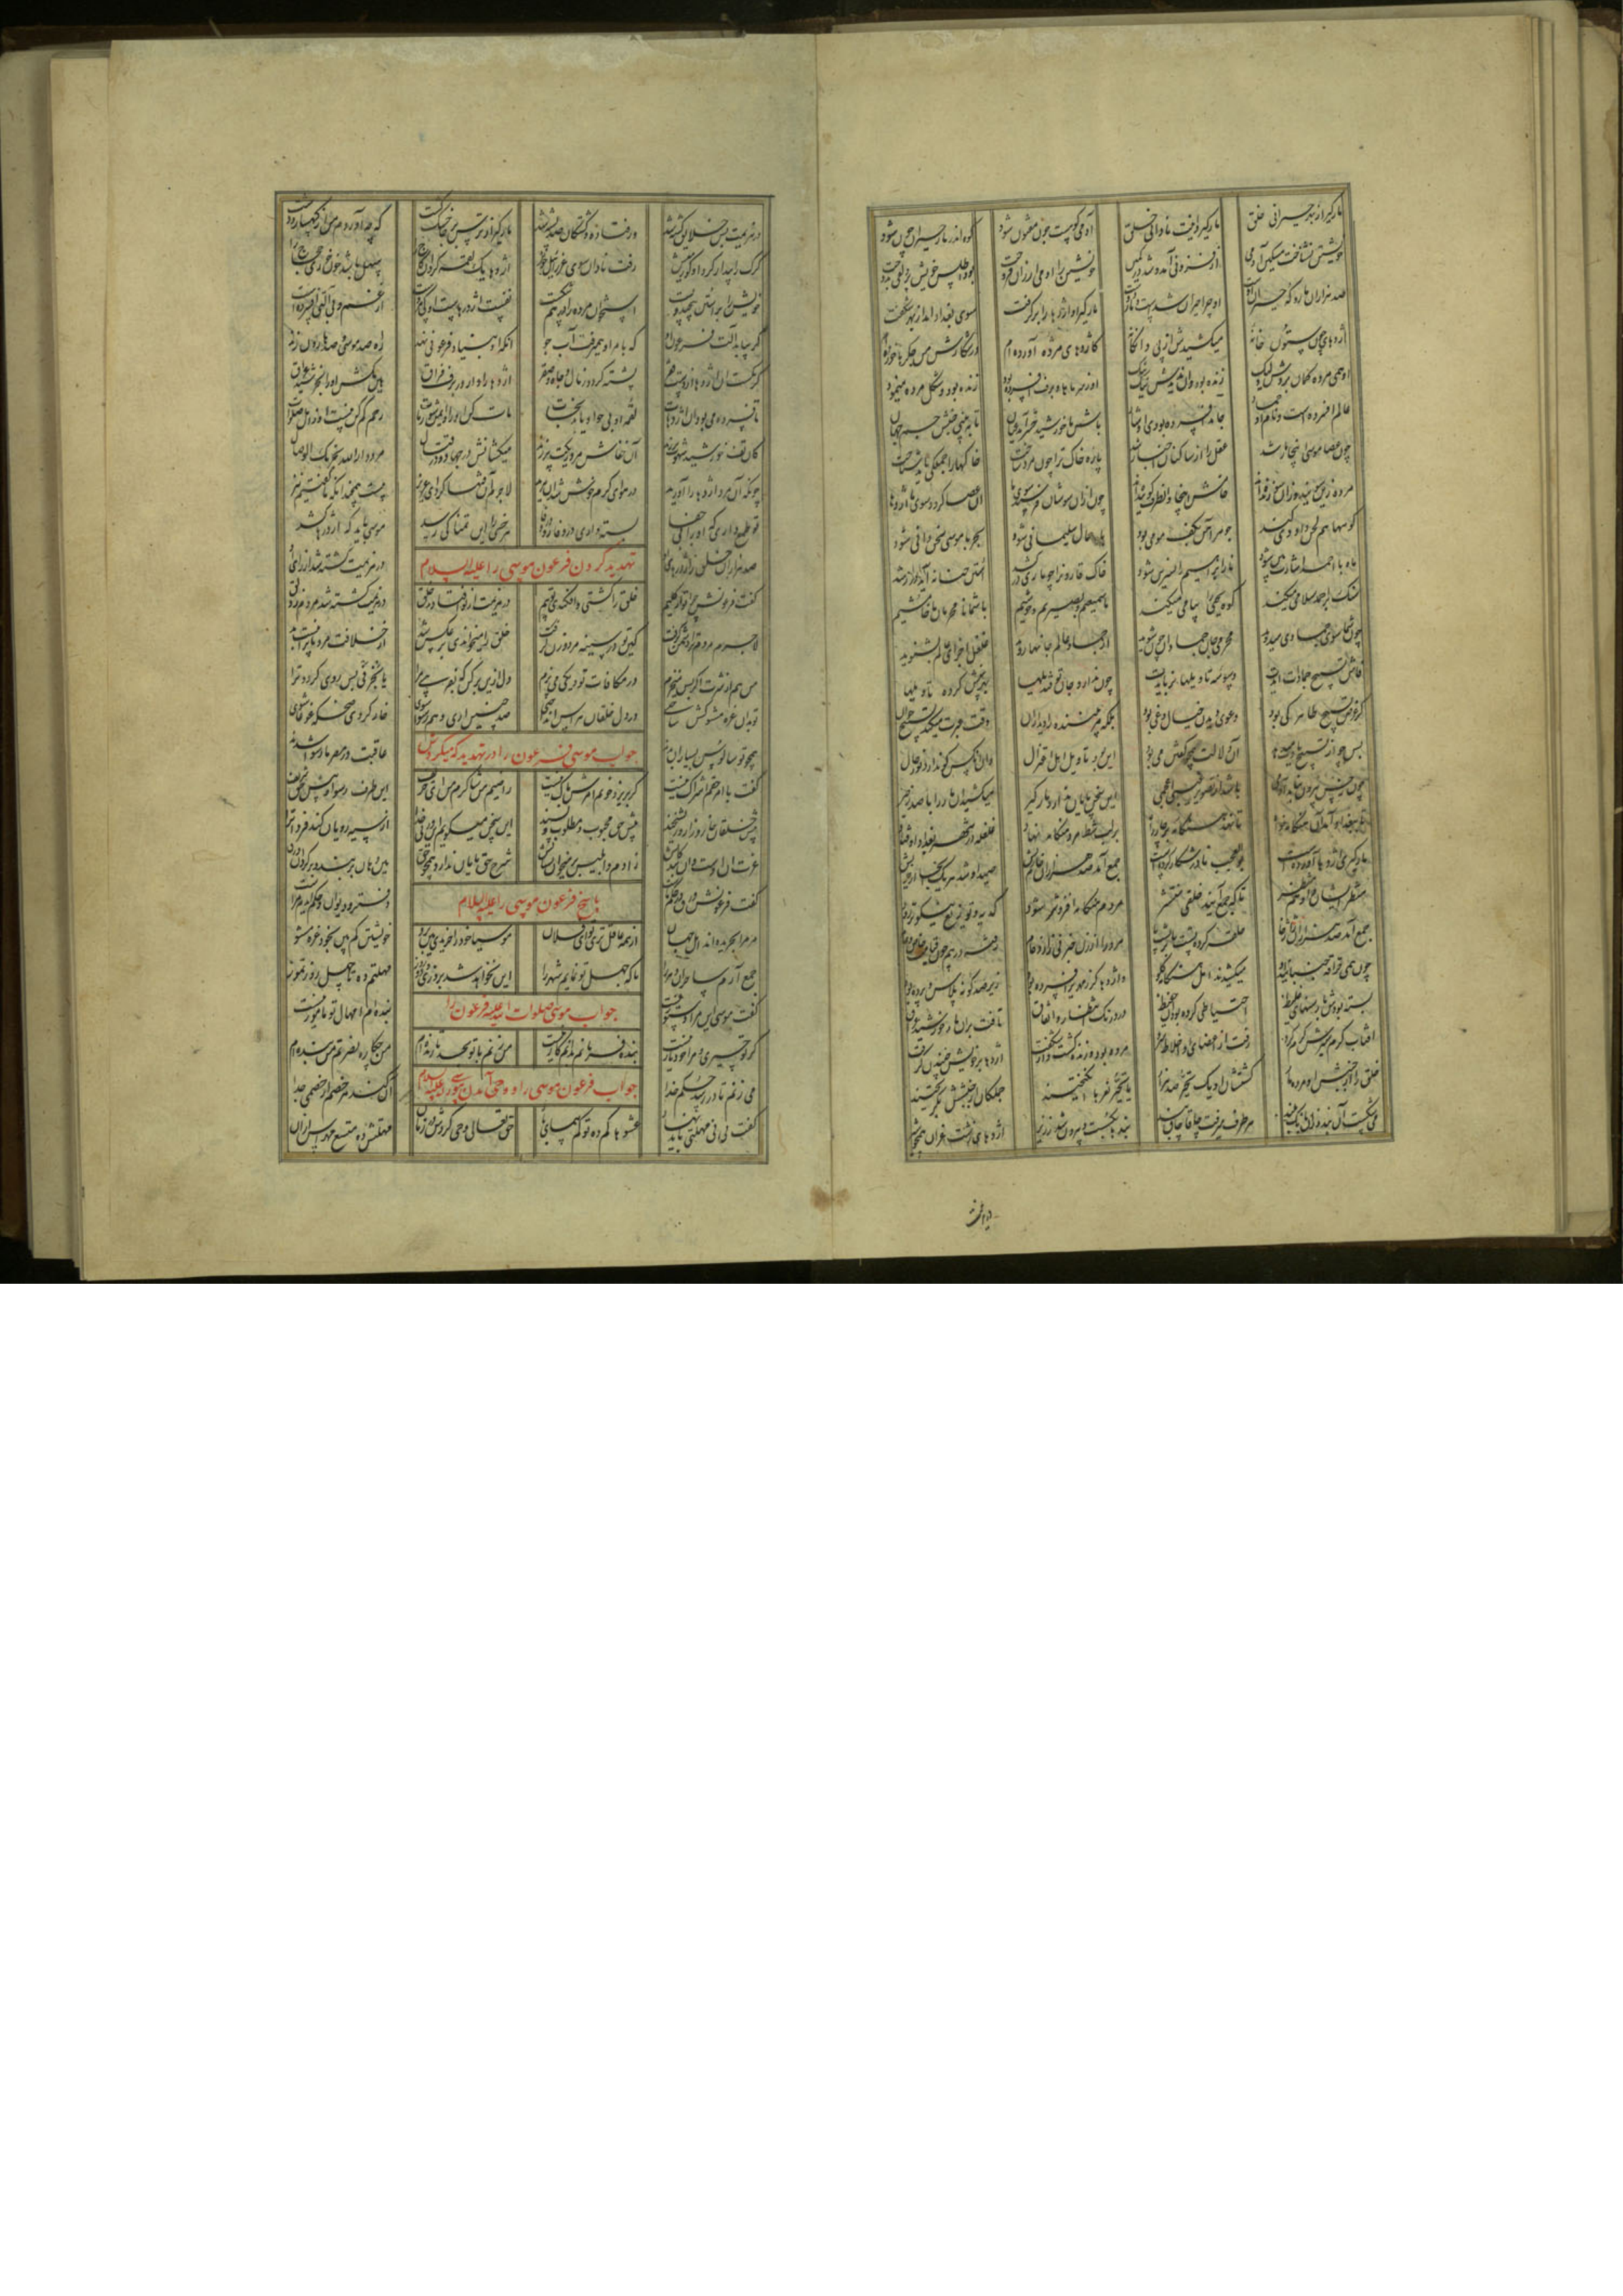 مارگیر از بهر حیرانی خلق مارگیرد اینت نادانی خلق آدمی کوهیست چون مفتون شود کوه اندر مار حیران چون شود
خویشتن نشناخت مسکین آدمی از فزونی آمد و شد در کمی خویشتن را آدمی ارزان فروخت بود اطلس خویش بر دلقی بدوخت
صد هزاران مار و که حیران اوست او چرا حیران شدست و ماردوست مارگیر آن اژدها را برگرفت سوی بغداد آمد از بهر شگفت
اژدهایی چون ستون خانه میکشیدش از پی دانگانه کاژدهای مرده آورده ام در شکارش من جگرها خورده ام
او همی مرده گمان بردش ولیک زنده بود و او ندیدش نیک نیک او ز سرماها و برف افسرده بود زنده بود و شکل مرده مینمود
عالم افسرده است و نام او جماد جامد افسرده بود ای اوستاد باش تا خورشید حشر آید عیان تا ببینی جنبش جسم جهان
چون عصای موسی اینجا مار شد عقل را از ساکنان اخبار شد پاره خاک ترا چون مرد ساخت خاکها را جملگی باید شناخت
مرده زین سویند و زان سو زنده اند خامش اینجا و آنطرف گوینده اند چون از آن سوشان فرستد سوی ما آن عصا گردد سوی ما اژدها
کوهها هم لحن داودی کند جوهر آهن بکف مومی بود باد حمال سلیمانی شود بحر با موسی سخن دانی شود
ماه با احمد اشارت بین شود نار ابراهیم را نسرین شود خاک قارون را چو ماری درکشد استن حنانه آید در رشد
سنگ بر احمد سلامی میکند کوه یحیی را پیامی میکند ما سمیعیم و بصیریم و خوشیم با شما نامحرمان ما خامشیم
چون شما سوی جمادی میروید محرم جان جمادان چون شوید از جمادی عالم جانها روید غلغل اجزای عالم بشنوید
فاش تسبیح جمادات آیدت وسوسه تاویلها نربایدت چون ندارد جان تو قندیلها بهر بینش کرده تاویلها
که غرض تسبیح ظاهر کی بود دعوی دیدن خیال غی بود بلکه مر بیننده را دیدار آن وقت عبرت میکند تسبیح خوان
پس چو از تسبیح یادت میدهد آن دلالت همچو گفتن می بود این بود تاویل اهل اعتزال وان آنکس کو ندارد نور حال
چون ز حس بیرون نیامد آدمی باشد از تصویر غیبی اعجمی این سخن پایان ندارد مارگیر میکشید آن مار را با صد زحیر
تا ببغداد آمد آن هنگامه جو تا نهد هنگامه بر چارسو بر لب شط مرد هنگامه نهاد غلغله در شهر بغداد اوفتاد
مارگیری اژدها آورده است بوالعجب نادر شکاری کرده است جمع آمد صد هزاران خام ریش صید او شد هر یک آنجا
منتظر ایشان و او هم منتظر تا که جمع آیند خلق منتشر مردم هنگامه افزونتر شود کدیه و توزیع نیکوتر رود
جمع آمد صد هزاران ژاژخا حلقه کرده پشت پا بر پشت پا مرد را از زن خبر نی ز ازدحام رفته درهم چون قیامت خاص و عام
چون همی حراقه جنبانید او میکشیدند اهل هنگامه گلو واژدها کز زمهریر افسرده بود زیر صد گونه پلاس و پرده بود
بسته بودش با رسنهای غلیظ احتیاطی کرده بودش آن حفیظ در درنگ انتظار و اتفاق تافت بر آن مار خورشید عراق
آفتاب گرم سیرش گرم کرد رفت از اعضای او اخلاط سرد مرده بود و زنده گشت او از شگفت اژدها بر خویش جنبیدن گرفت
خلق را از جنبش آن مرده مار گشتشان آن یک تحیر صد هزار با تحیر نعرها انگیختند جملگان از جنبشش بگریختند
می شکست آن بند زان بانگ بلند هر طرف میرفت چاقاچاق بند بندها بگسست و بیرون شد ز زیر اژدهای زشت غران همچو شیر
در هزیمت
در هزیمت بس خلایق کشته شد ور فتاده و کشتگان صد پشته شد مارگیر از ترس بر جا خشک گشت که چه آوردم من از کهسار و دشت
گرگ را بیدار کرد آن کور میش رفت نادان سوی عزریل خویش اژدها یک لقمه کرد آن گیج را سهل باشد خون خوری حجاج را
خویش را بر استنی پیچید و بست استخوان خورده را درهم شکست نفست اژدرهاست او کی مرده است از غم بی آلتی افسرده است
گر بیابد آلت فرعون او که بامر او همیرفت آب جو آنگه او بنیاد فرعونی نهد راه صد موسی و صد هارون زند
کرمکست آن اژدها از دست فقر پشه گردد ز مال و جاه صقر اژدها را دار در برف فراق هین مکش او را بخورشید عراق
تا فسرده می بود آن اژدهات لقمه اویی چو او یابد نجات مات کن او را و ایمن شو ز مات رحم کم کن نیست او ز اهل صلات
کان تف خورشید شهوت بر زند آن خفاش مرده ریگت پر زند میکشانش در جهاد و در قتال مردوار الله یجزیک الوصال
چونکه آن مرد اژدها را آورید در هوای گرم خوش شد آن مرید لاجرم آن فتنها کرد ای عزیز بیست همچندان که ما گفتیم نیز
تو طمع داری که او را بی جفا بسته داری در وقار و در وفا هر خسی را این تمنا کی رسد موسیی باید که اژدرها کشد
صد هزاران خلق ز اژدرهای او در هزیمت کشته شد از رای او
تهدید کردن فرعون موسی را علیه السلام
گفت فرعونش چرا تو ای کلیم خلق را کشتی و افکندی تو بیم در هزیمت از تو افتادند خلق در هزیمت کشته شد مردم ز زلق
لاجرم مردم ترا دشمن گرفت کین تو در سینه مرد و زن گرفت خلق را میخواندی بر عکس شد از خلافت مردمان را نیست بد
من هم از شرت اگر پس میخزم در مکافات تو دیگی می پزم دل ازین بر کن که بفریبی مرا یا بجز فی پس روی گردد ترا
تو بدان غره مشو کش ساختی در دل خلقان هراس انداختی صد چنین آری و هم رسوا شوی خوار گردی ضحکه غوغا شوی
همچو تو سالوس بسیاران بدند عاقبت در مصر ما رسوا شدند
جواب موسی فرعون را در تهدید که میکردش
گفت با امر حقم اشراک نیست گر بریزد خونم امرش باک نیست راضیم من شاکرم من ای حریف این طرف رسوا و پیش حق شریف
پیش خلقان خوار و زار و ریشخند پیش حق محبوب و مطلوب و پسند از سخن میگویم این ور نی خدا از سیه رویان کند فردا ترا
عزت آن اوست و آن بندگانش ز آدم و ابلیس بر میخوان نشانش شرح حق پایان ندارد همچو حق هین دهان بربند و برگردان ورق
گفت فرعونش ورق در حکم ماست دفتر و دیوان و حکم این دم مراست
پاسخ فرعون موسی را علیه السلام
مر مرا بخریده اند اهل جهان از همه عاقلتری تو ای فلان موسیا خود را خریدی هین برو خویشتن کم بین بخود غره مشو
جمع آرم ساحران دهر را تا که جهل تو نمایم شهر را این نخواهد شد بروزی و دو روز مهلتم ده تا چهل روز تموز
گفت موسی این مرا دستور نیست بنده ام امهال تو مامور نیست
جواب موسی صلوات الله علیه فرعون را
گر تو چیری و مرا خود یار نیست بنده فرمانم بدانم کار نیست می زنم با تو بجد تا زنده ام من چکاره نصرتم من بنده ام
می زنم تا در رسد حکم خدا او کند هر خصم از خصمی جدا
جواب فرعون موسی را و وحی آمدن علیه السلام
گفت نی نی مهلتی باید نهاد عشوها کم ده تو کم پیمای باد حق تعالی وحی کردش در زمان مهلتش ده متسع مهراس از آن